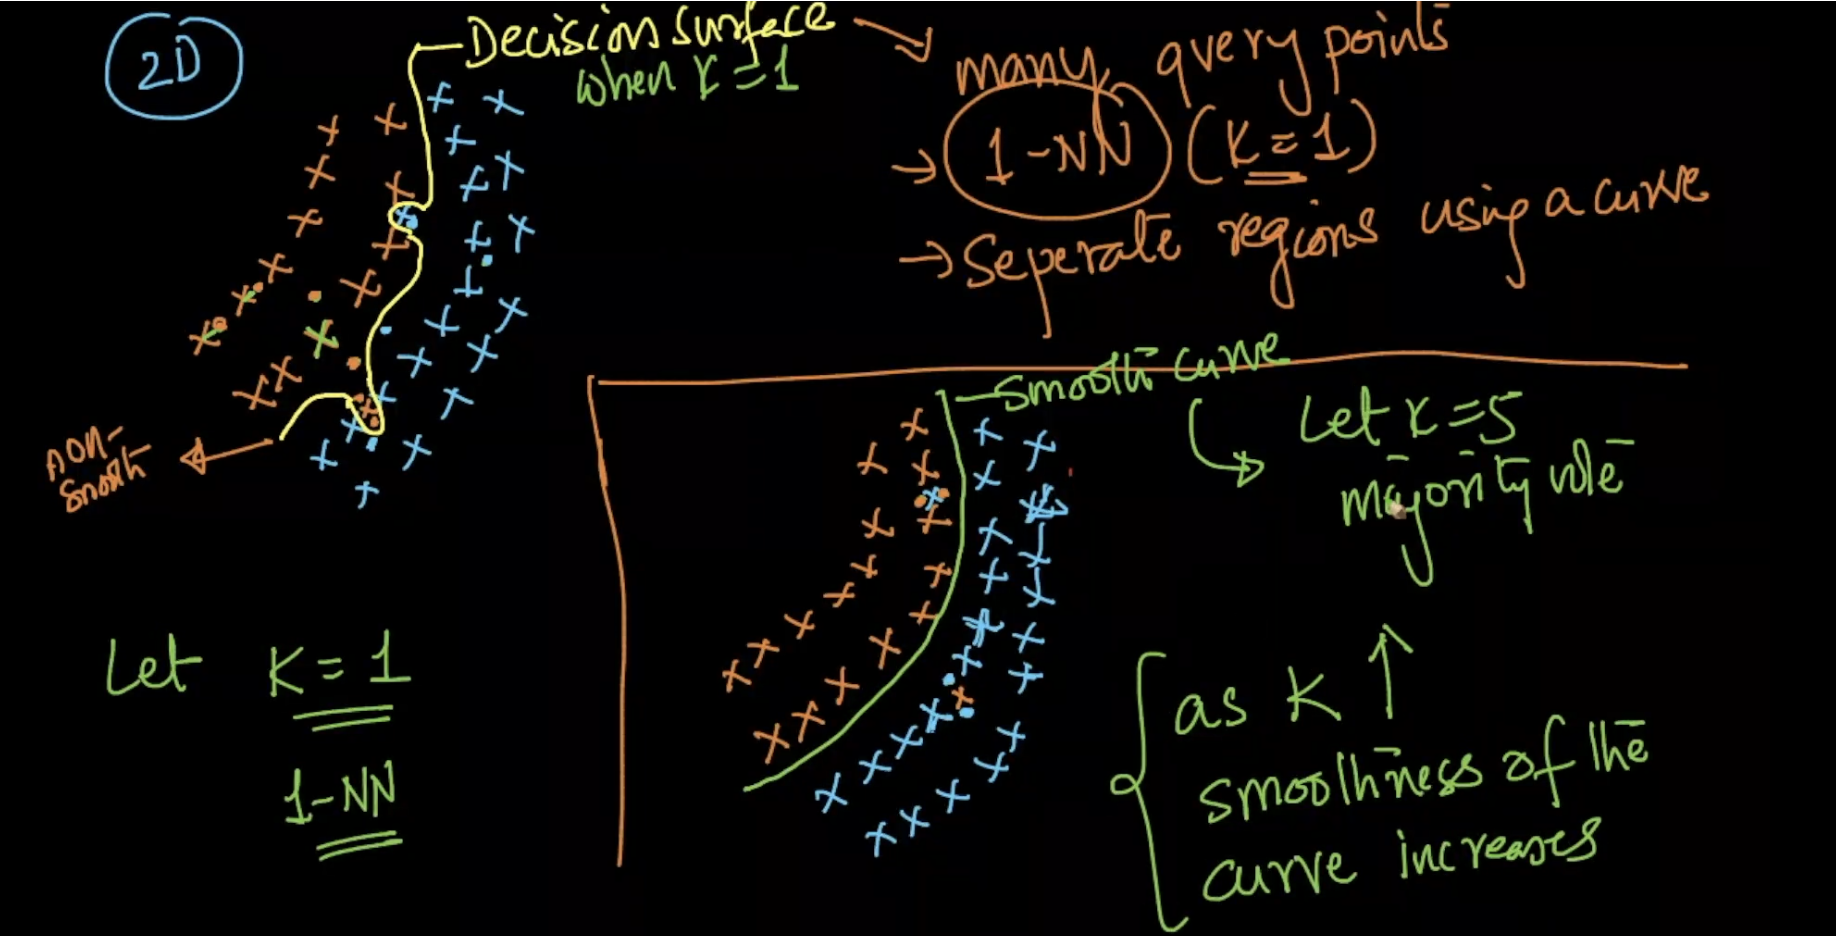 2D
Decision surface
when K=1
many query points
1-NN (K=1)
Seperate regions using a curve
non-
smooth
Let K=1
1-NN
Smooth curve
Let K=5
majority vote
as K ↑
smoothness of the
curve increases